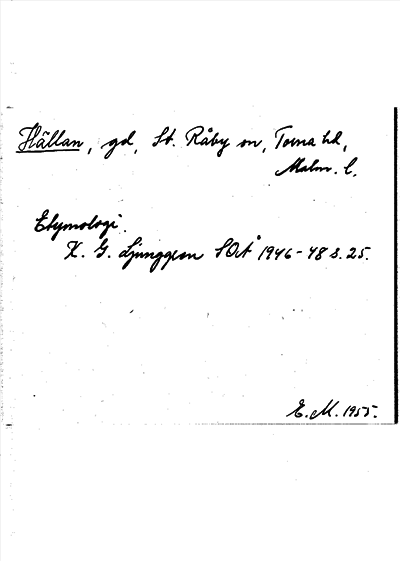 Hällan, gd, St. Råby sn, Torna hd,
Malm. l.
Etymologi.
K. G. Ljunggren SOÅ 1946-48 s. 25.
E. M. 1955.